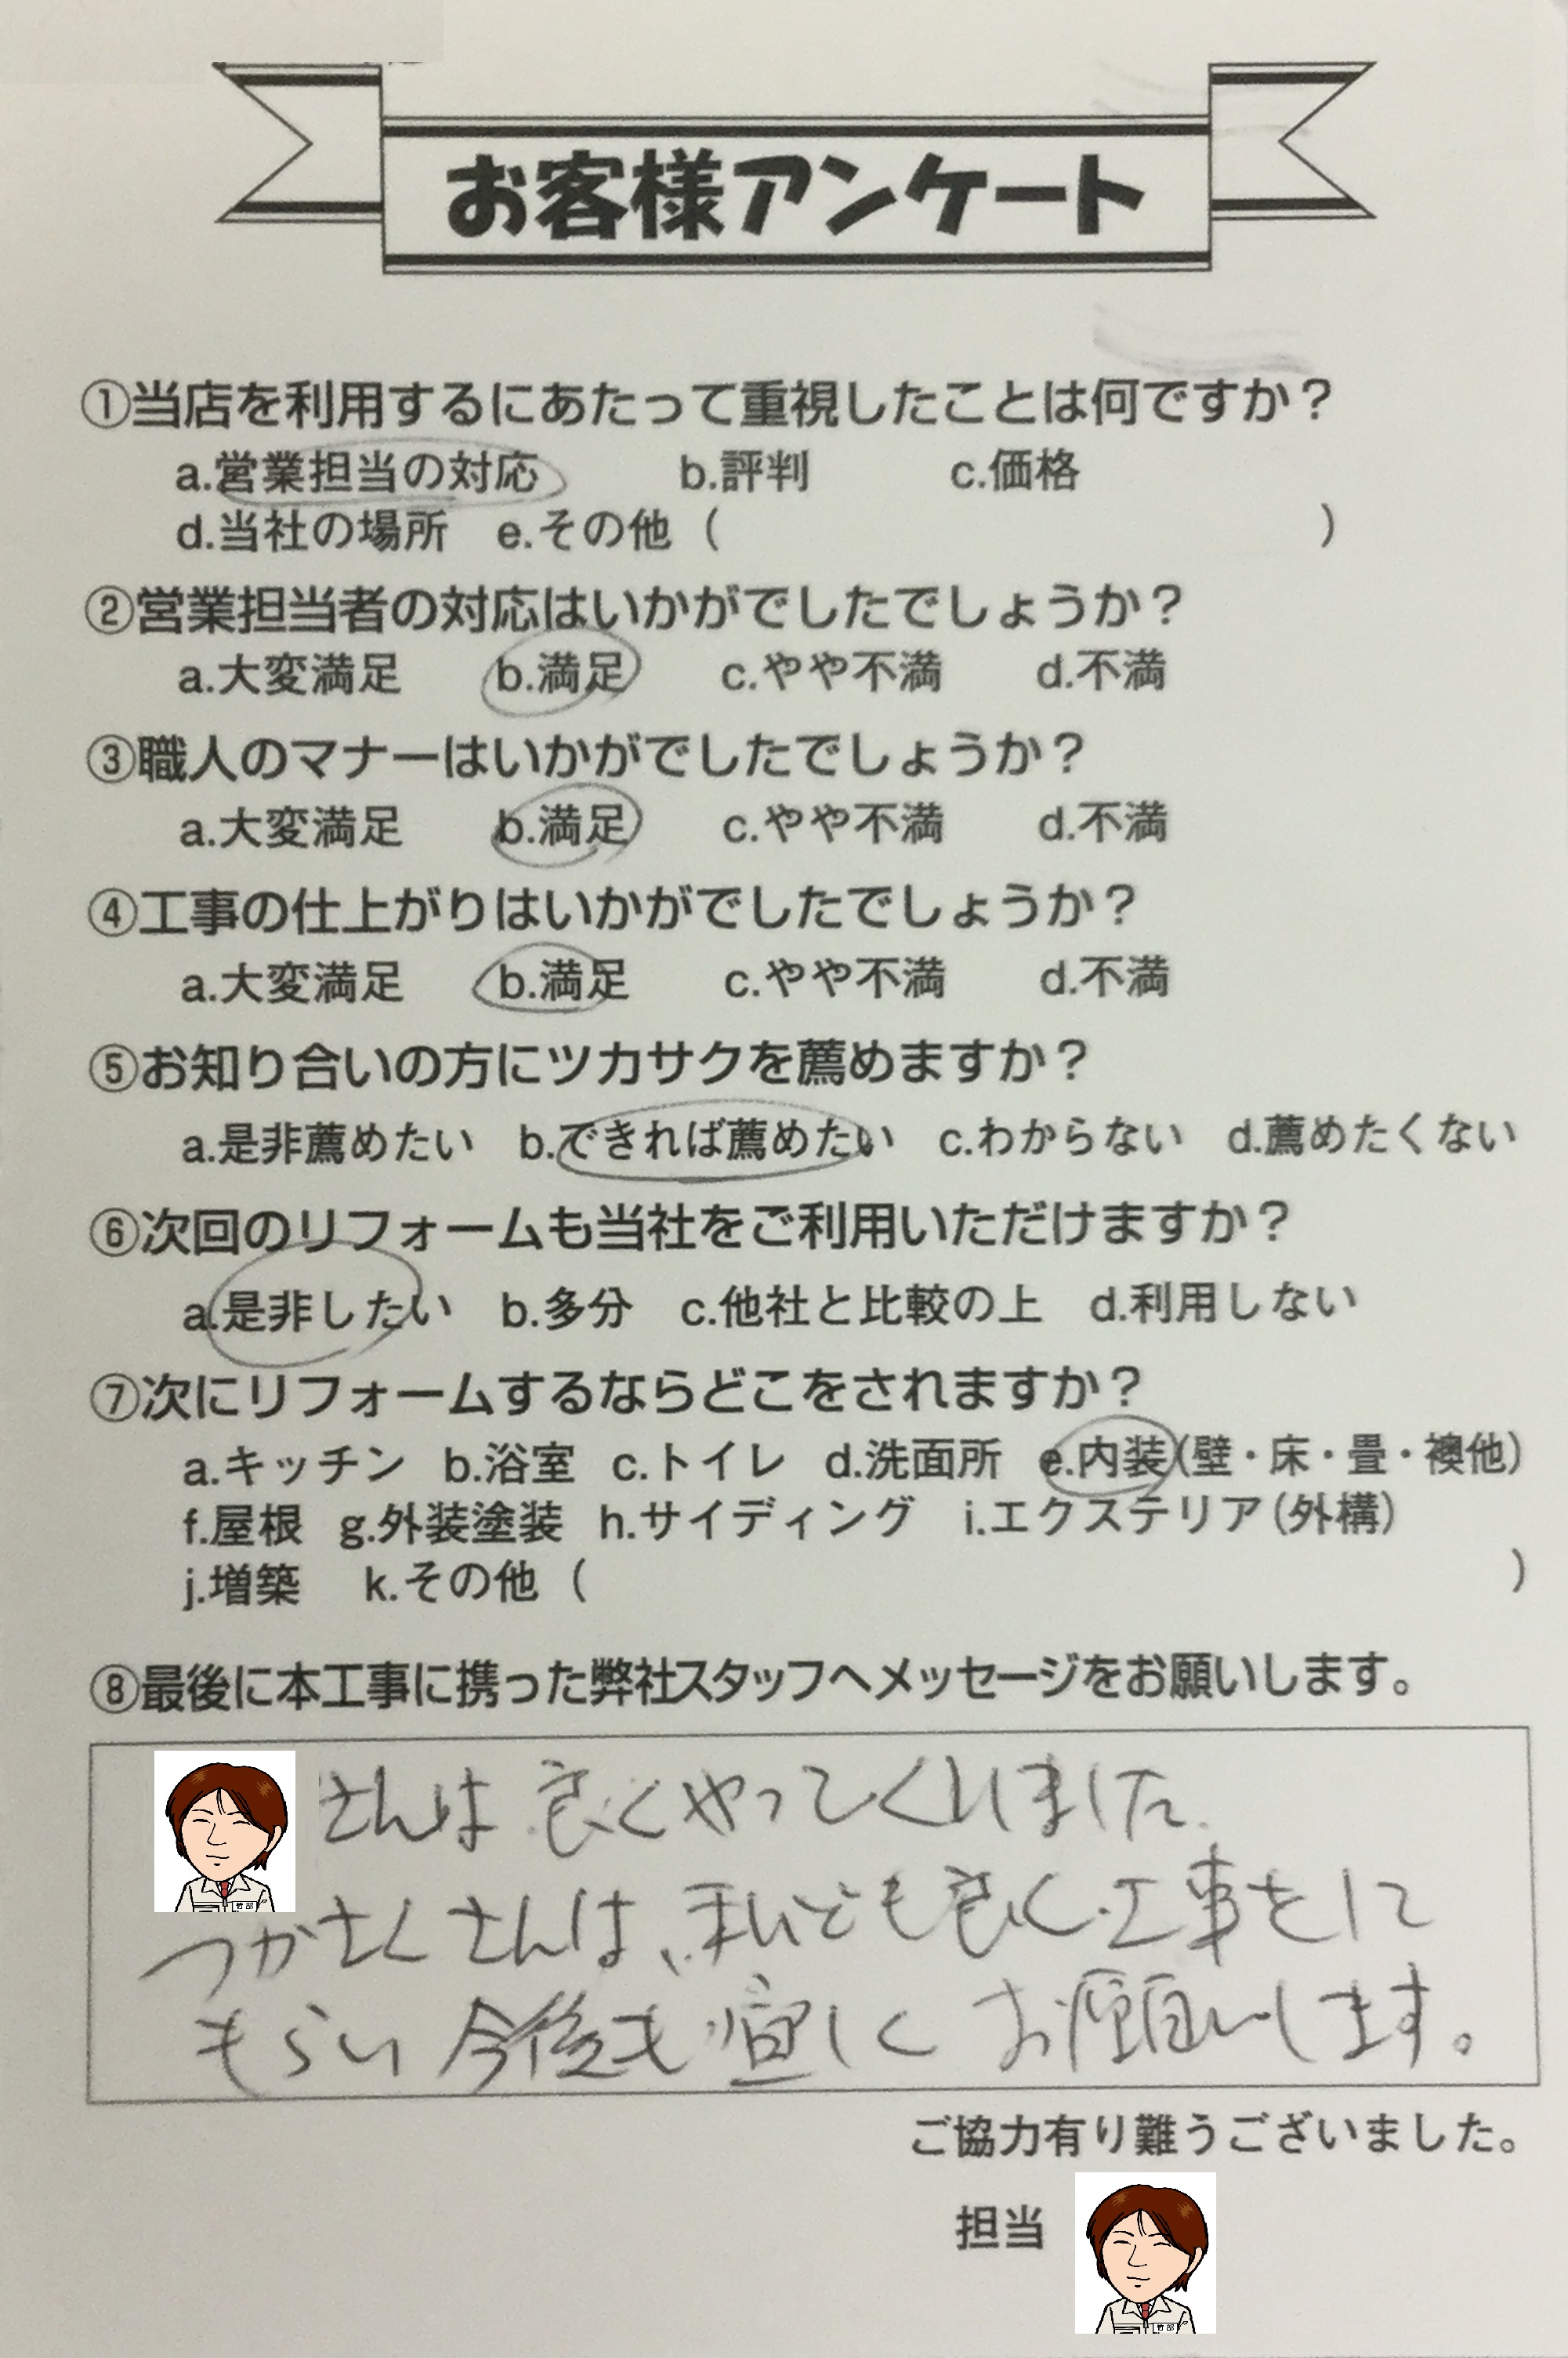 お客様アンケート
①当店を利用するにあたって重視したことは何ですか？
a.営業担当の対応 b.評判 c.価格
d.当社の場所 e.その他（ ）
②営業担当者の対応はいかがでしたでしょうか？
a.大変満足 b.満足 c.やや不満 d.不満
③職人のマナーはいかがでしたでしょうか？
a.大変満足 b.満足 c.やや不満 d.不満
④工事の仕上がりはいかがでしたでしょうか？
a.大変満足 b.満足 c.やや不満 d.不満
⑤お知り合いの方にツカサクを薦めますか？
a.是非薦めたい b.できれば薦めたい c.わからない d.薦めたくない
⑥次回のリフォームも当社をご利用いただけますか？
a.是非したい b.多分 c.他社と比較の上 d.利用しない
⑦次にリフォームするならどこをされますか？
a.キッチン b.浴室 c.トイレ d.洗面所 e.内装（壁・床・畳・襖他）
f.屋根 g.外装塗装 h.サイディング i.エクステリア（外構）
j.増築 k.その他（ ）
⑧最後に本工事に携った弊社スタッフへメッセージをお願いします。
さんは良くやってくれました。
つかさくさんは、まいども良く工事をして
もらい今後も宜しくお願いします。
ご協力有り難うございました。
担当